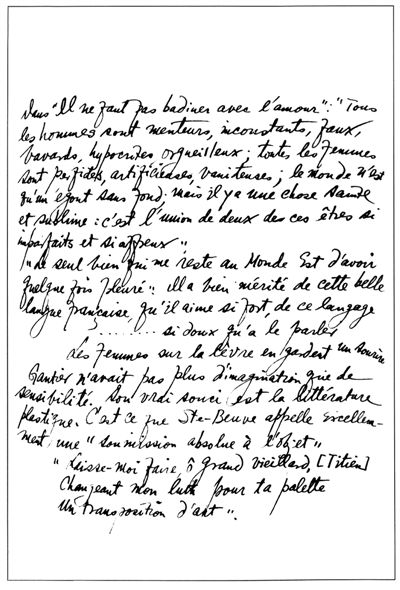 dans "Il ne faut pas badiner avec l'amour": "Tous
les hommes sont menteurs, inconstants, faux,
bavards, hypocrites orgueilleux; toutes les femmes
sont perfides, artificieuses, vaniteuses; le monde n'est
qu'un égout sans fond; mais il y a une chose sainte
et sublime: c'est l'union de deux des ces êtres si
imparfaits et si affreux"
"Le seul bien qui me reste au Monde Est d'avoir
quelque fois pleuré": Il a bien mérité de cette belle
langue française, qu'il aime si fort, de ce langage
........ si doux qu'a le parler
Les femmes sur la lèvre en gardent un sourire
Gautier n'avait pas plus d'imagination que de
sensibilité. Son vrai souci est la littérature
plastique. C'est ce que Ste-Beuve appelle excellem-
ment, une "soumission absolue à l'objet"
"Laisse-moi faire, ô grand vieillard, [Titien]
Changeant mon luth pour ta palette
Un transposition d'art".